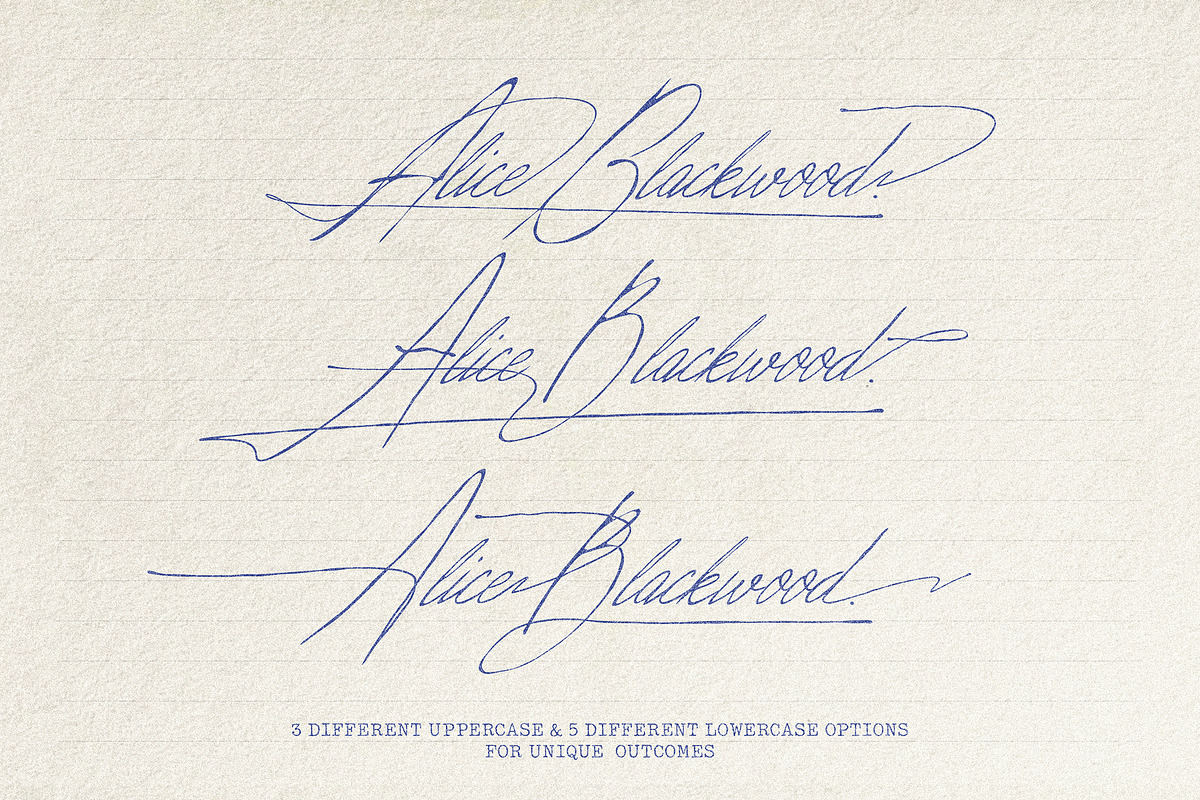 Alice Blackwood.
Alice Blackwood.
Alice Blackwood.
3 DIFFERENT UPPERCASE & 5 DIFFERENT LOWERCASE OPTIONS
FOR UNIQUE OUTCOMES